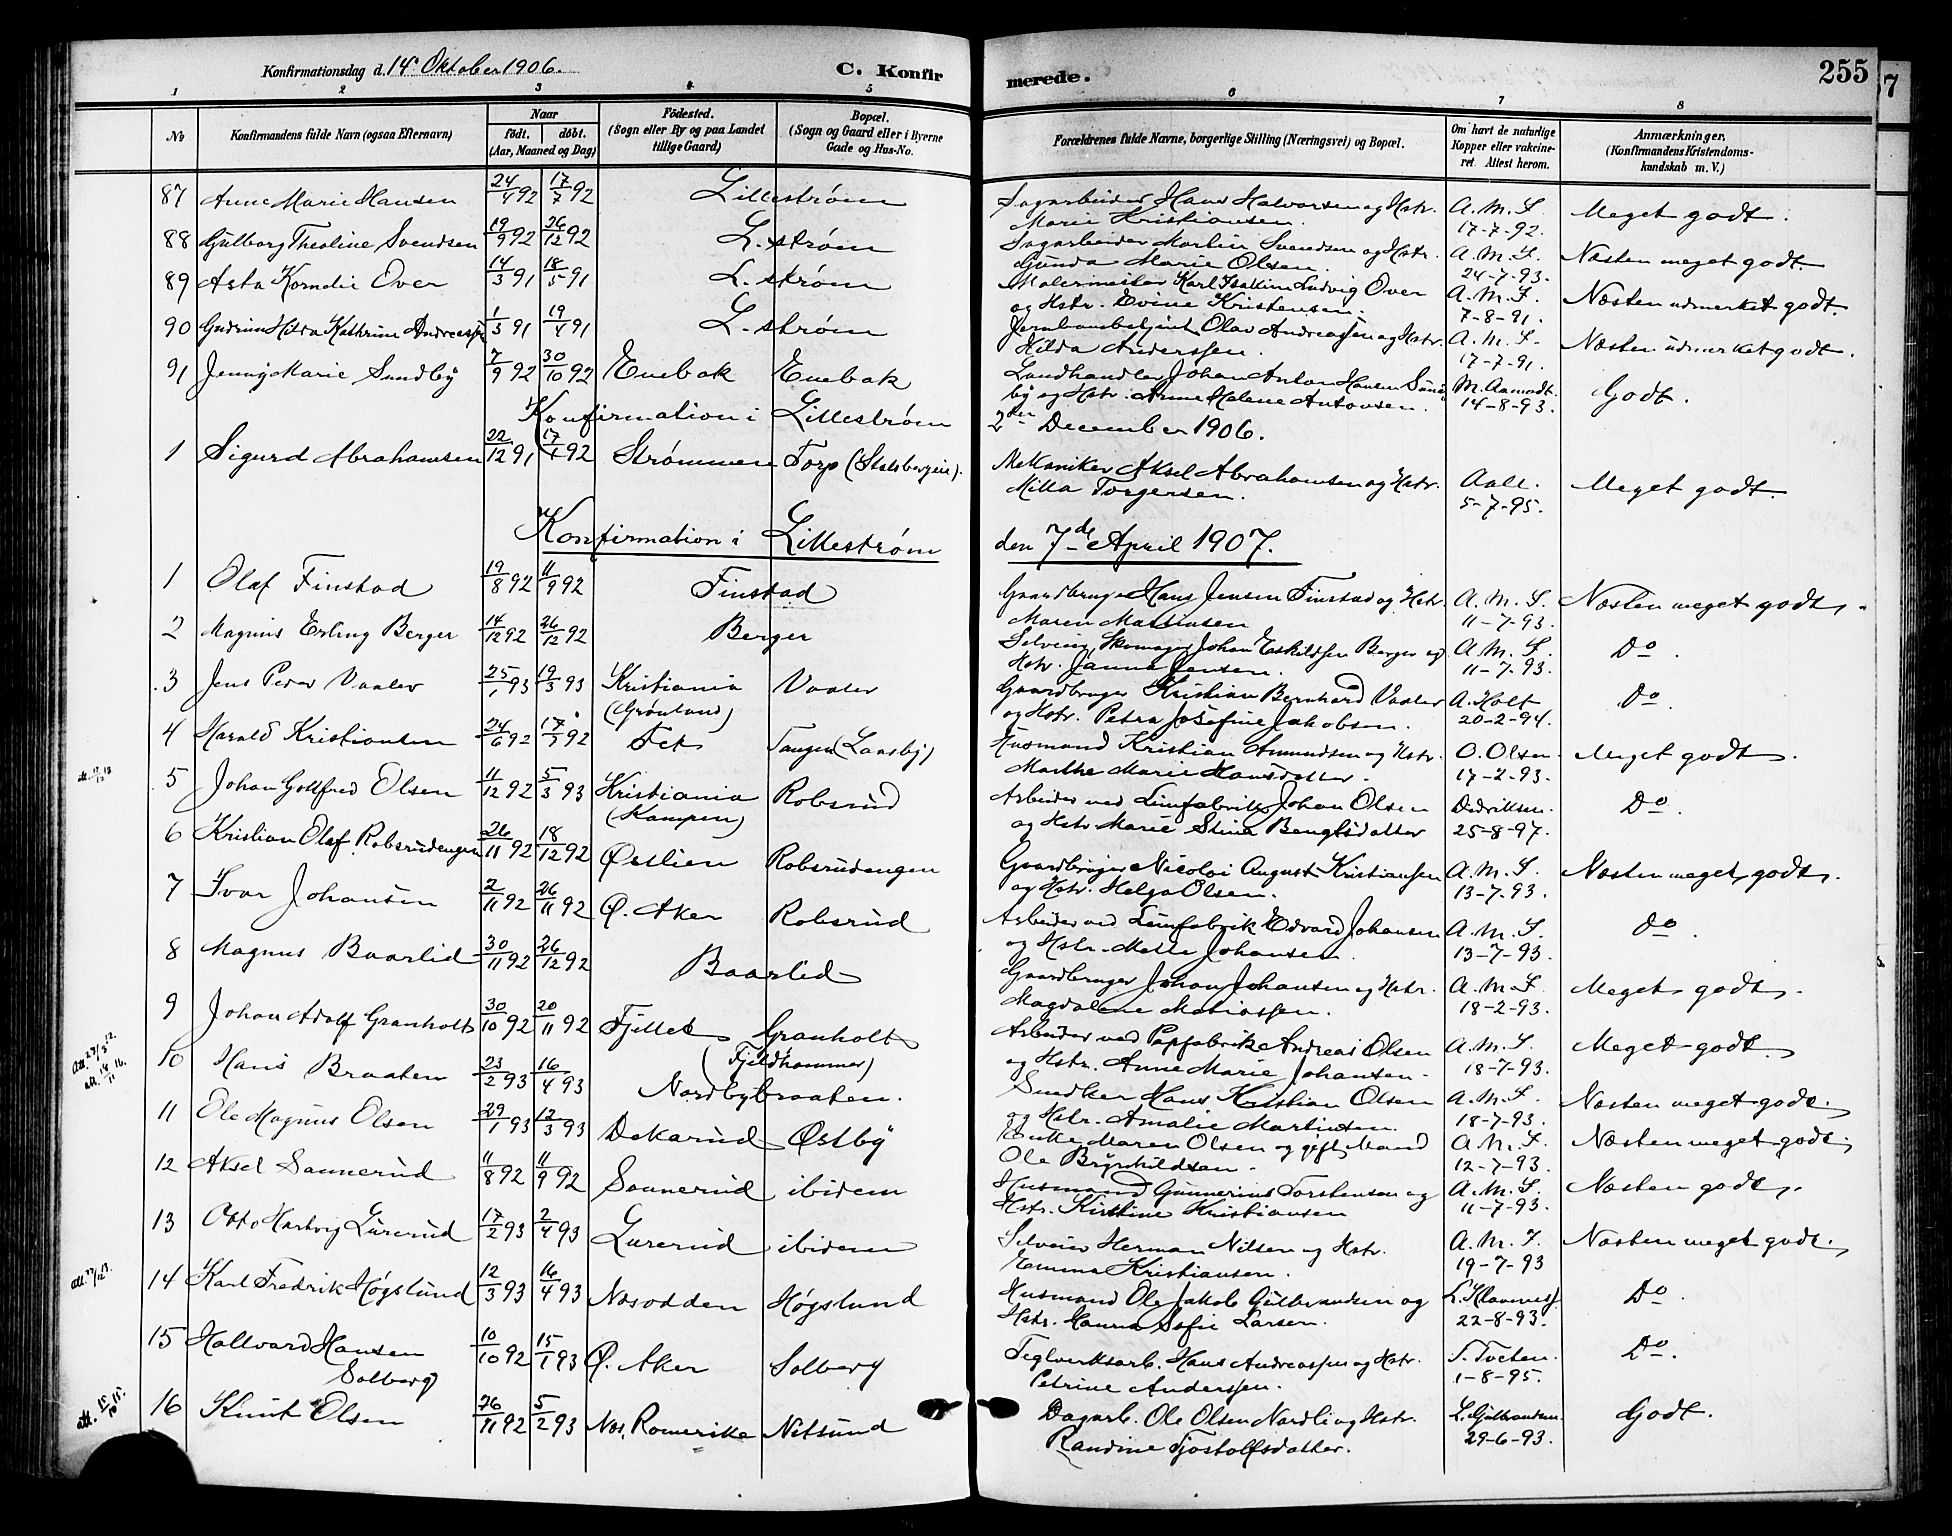 Konfirmationsdag d. 14. Oktober 1906. C. Konfir merede. 255
1 2 3 4 5 6 7 8
No Konfirmandens fulde Navn (ogsaa Efternavn) Naar født. døbt. (Aar, Maaned og Dag) Födested. (Sogn eller By og paa Landet tillige Gaard) Bopæl. (Sogn og Gaard eller i Byerne Gade og Hus-No. Forældrenes fulde Navne, borgerlige Stilling (Næringsvei) og Bopæl. Om havt de naturlige Kopper eller vakcineret. Attest herom. Anmærkninger. (Konfirmandens Kristendomskundskab m. V.)
87 Anne Marie Hansen 24/4 92 17/7 92 Lillestrøm Sagarbeider Hans Halvorsen og Hstr. A. M. F. Meget godt.
Marie Kristiansen. 17-7-92.
88 Gulborg Theoline Svendsen 19/9 92 26/12 92 L. strøm Sagarbeider Martin Svendsen og Hstr. A. M. F. Næsten meget godt.
Gunda Marie Olsen. 24-7-93.
89 Asta Kornelie Over 14/3 91 18/5 91 L. strøm Malermester Karl Ludvig Over A. M. F. Næsten udmerket godt.
og Hstr. Evine Kristensen. 7-8-91.
90 Gudrun Hilda Kathrine Andreassen 1/3 91 19/4 91 L. strøm Jernbanebetjent Olav Andreassen og Hstr. A. M. F. Næsten udmerket godt.
Hilda Anderssen. 17-7-91.
91 Jenny Marie Sundby 7/9 92 30/10 92 Enebak Enebak Landhandler Johan Anton Hansen Sund M. Aamodt. Godt.
by og Hstr. Anne Helene Antonsen. 14-8-93.
Konfirmation i Lillestrøm 2den December 1906.
1 Sigurd Abrahamsen 22/12 91 17/4 92 Strømmen Torp Mekaniker Aksel Abrahamsen og Hstr. Aall. Meget godt.
Milla Torgersen. 5-7-95.
Konfirmation i Lillestrøm den 7de April 1907.
1 Olaf Finstad 19/8 92 11/9 92 Finstad Gaardbruger Hans Jensen Finstad og Hstr. A. M. F. Næsten meget godt.
Maren 11-7-93.
2 Magnus Erling Berger 14/12 92 26/12 92 Berger Selveier, Skomager Johan Eskildsen Berger og A. M. F. Do.
Hstr. Janna Jensen. 11-7-93.
3 Jens Peder Vaaler 25/1 93 19/3 93 Kristiania Vaaler Gaardbruger Kristian Bernhard Vaaler A. Holt Do.
(Grønland) og Hstr. Petra Josefine Jakobsen. 20-2-94.
4 Harald Kristiansen 24/6 92 17/7 92 Fet Tangen (Laasby) Husmand Kristian Amundsen og Hstr. O. Olsen. Meget godt.
Marthe Marie Hansdatter. 17-2-93.
5 Johan Gottfred Olsen 11/12 92 5/3 93 Kristiania Robsrud Arbeider ved Limfabrik Johan Olsen Dedriksen. Do.
(Kampen) og Hstr. Marie Stina Bengtsdatter 25-8-97.
6 Kristian Olaf Robsrudengen 26/11 92 18/12 92 Østlien Robsrudengen Gaardbruger Nicolai August Kristiansen A. M. F. Næsten meget godt.
og Hstr. Helga Olsen. 13-7-93.
7 Ivar Johansen 2/11 92 26/11 92 Ø. Aker Robsrud Arbeider ved Limfabrik Edvard Johansen A. M. F. do.
og Hstr. Mette Johansen. 13-7-93.
8 Magnus Baarlid 30/11 92 26/12 92 Baarlid Gaardbruger Johan Johansen og Hstr. A. M. F. Meget godt.
Magdalene Mathiassen. 18-2-93.
9 Johan Adolf Granholt 30/10 92 20/11 92 Fjellet Granholt Arbeider ved Papfabrik Andreas Olsen A. M. F. Meget godt.
(Fjeldhammer) og Hstr. Anne Marie Johansen. 18-7-93.
10 Hans Braaten 23/2 93 16/4 93 Nordbybraaten. Snedker Hans Kristian Olsen A. M. F. Næsten meget godt.
og Hstr. Amalie Martinsen. 18-7-93.
11 Ole Magnus Olsen 29/1 93 12/3 93 Dokarud Østby Enke Maren Olsen og gift Mand A. M. F. Næsten meget godt.
Ole Brynhildsen. 12-7-93.
12 Aksel Sannerud 11/8 92 11/9 92 Sannerud ibidem Husmand Gunnerius Torstensen og A. M. F. Næsten godt.
Hstr. Kirstine Kristiansen 11-7-93.
13 Otto Hartvig Lurerud 17/2 93 2/4 93 Lurerud ibidem Selveier Herman Nilsen og Hstr. A. M. F. Næsten meget godt.
Emma Kristiansen. 19-7-93
14 Karl Fredrik Høgslund 12/3 93 16/4 93 Næsodden Høgslund Husmand Ole Jakob Gulbrandsen og L. Klavenes. Do.
Hstr. Hanna Sofie Larsen. 22-8-93.
15 Hallvard Hansen 10/10 92 15/1 93 Ø. Aker Solberg Teglverksarb. Hans Andreassen og Hstr. S. Tveten. Do.
Solberg Petrine Anderssen. 1-8-95.
16 Knut Olsen 26/11 92 5/2 93 Nes, Romerike Nitsund Dagarb. Ole Olsen Nordli og Hstr. L. Gulbransen. Godt.
Randine Tjostolfsdatter. 29-6-93.